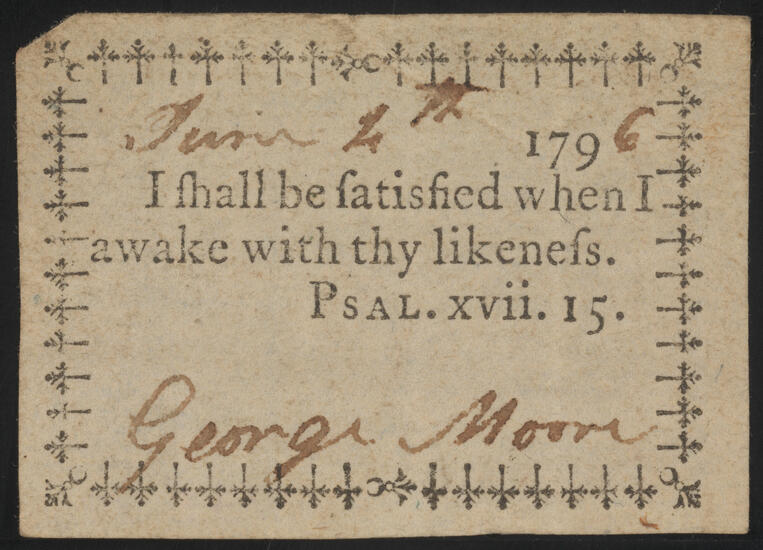 June 4th 1796
I ſhall be ſatisfied when I
awake with thy likeneſs.
PSAL. xvii. 15.
George Moore